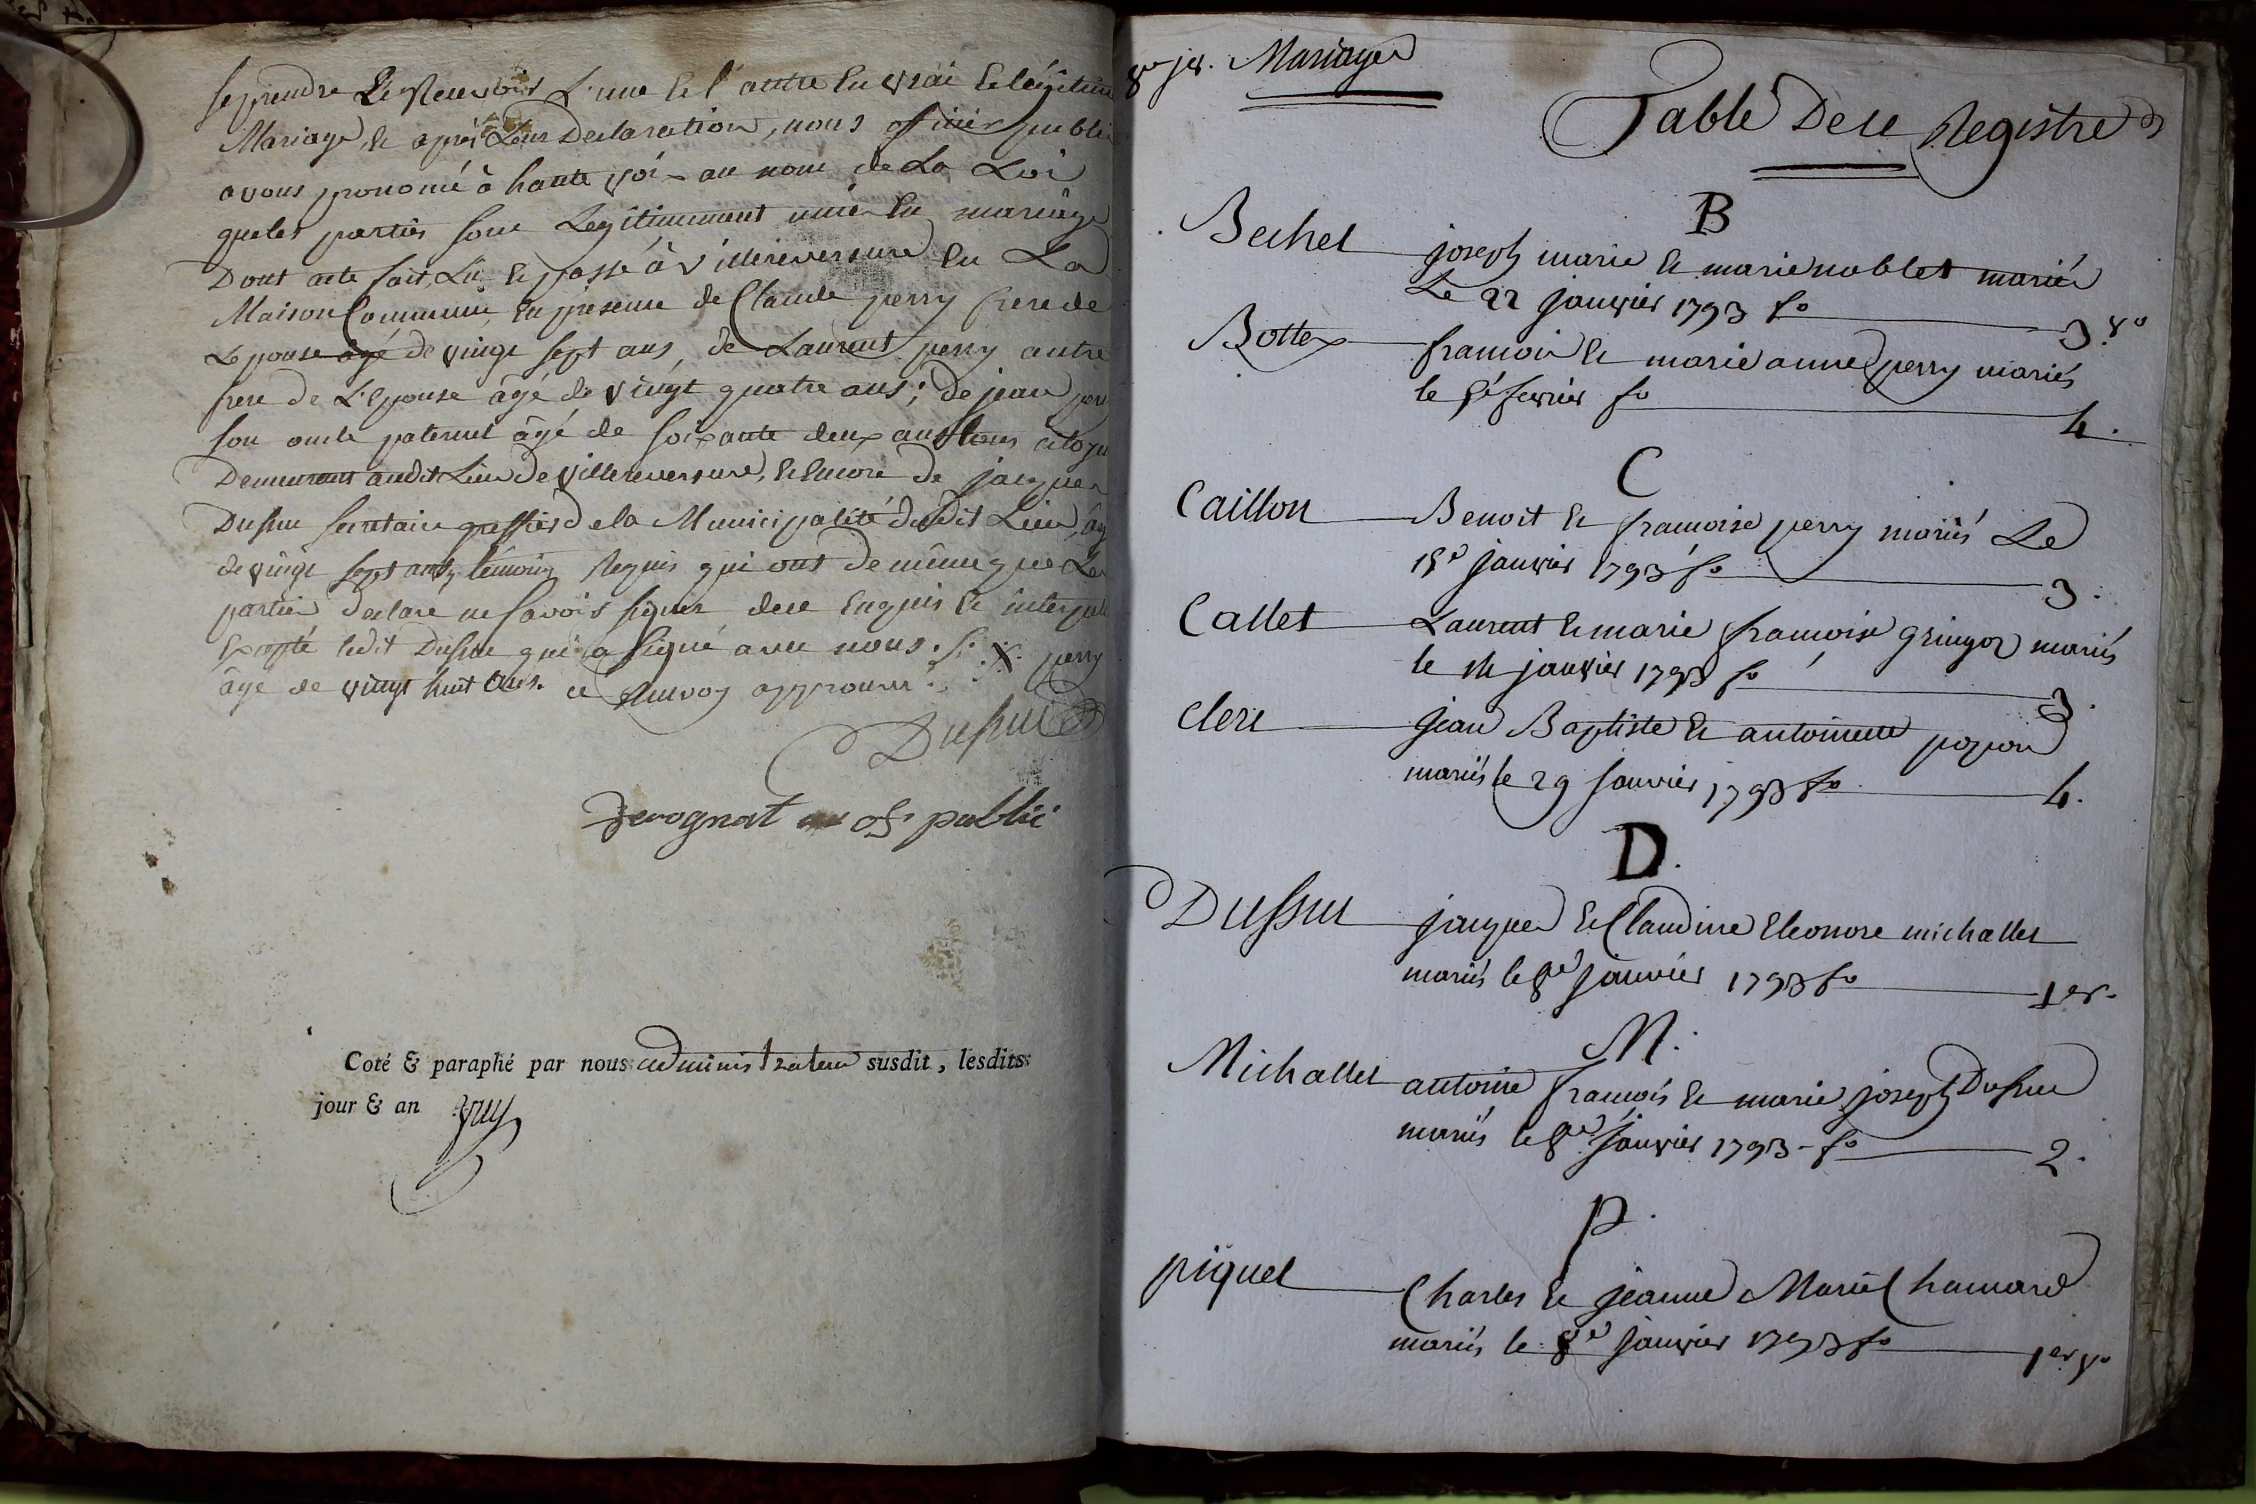 se prendre & Recevoir L'une & l'autre En vrai & légitime
Mariage, & après Leur Declaration, nous officier public
avons prononcé à haute voix au nom de La Loi
que les parties sont Legitimement unies En mariage
Dont acte fait, Lu & passé à villereversure En La
Maison Commune, En presence de Claude perry frere de
Lepouse âgé de vingt sept ans, de Laurent perry autre
frere de L'Epouse âgé de vingt quatre ans; de jean perry
son oncle paternel âgé de soixante deux ans tous citoyens
Demeurant audit Lieu de villereversure, & Encore de jacques
Dussuc secretaire greffier de la Municipalité dudit Lieu, âgé
de vingt sept ans, témoins Requis qui ont de même que Les
parties declaré ne savoir signer de ce Enquis & interpellés
Excepté ledit Dussuc qui a signé avec nous. X perry
âgé de vingt huit ans. ce Renvoy approuvé.
Dussuc
Zerognat off. public
Coté & paraphé par nous administrateur susdit, lesdits
jour & an
Mariages
Table De ce Registre
B
Bechet joseph marie & marie noblet mariés
Le 22 janvier 1793 fo 3 vo
Bottex francois & marie anne perry mariés
le 5e fevrier fo 4.
C
Caillon Benoit & francoise perry mariés Le
15e janvier 1793 fo 3.
Callet Laurent & marie francoise gringoz mariés
le 14 janvier 1793 fo 3.
clerc jean Baptiste & antoinette popon
mariés le 29 janvier 1793 fo 4.
D.
Dussuc jacques & Claudine Eleonore michallet
mariés le 8e janvier 1793 fo 1er.
M.
Michallet antoine francois & marie joseph Dussuc
mariés le 8e janvier 1793 - fo 2.
P.
piquet Charles & jeanne Marie Chanard
mariés le 8e janvier 1793 fo 1er vo